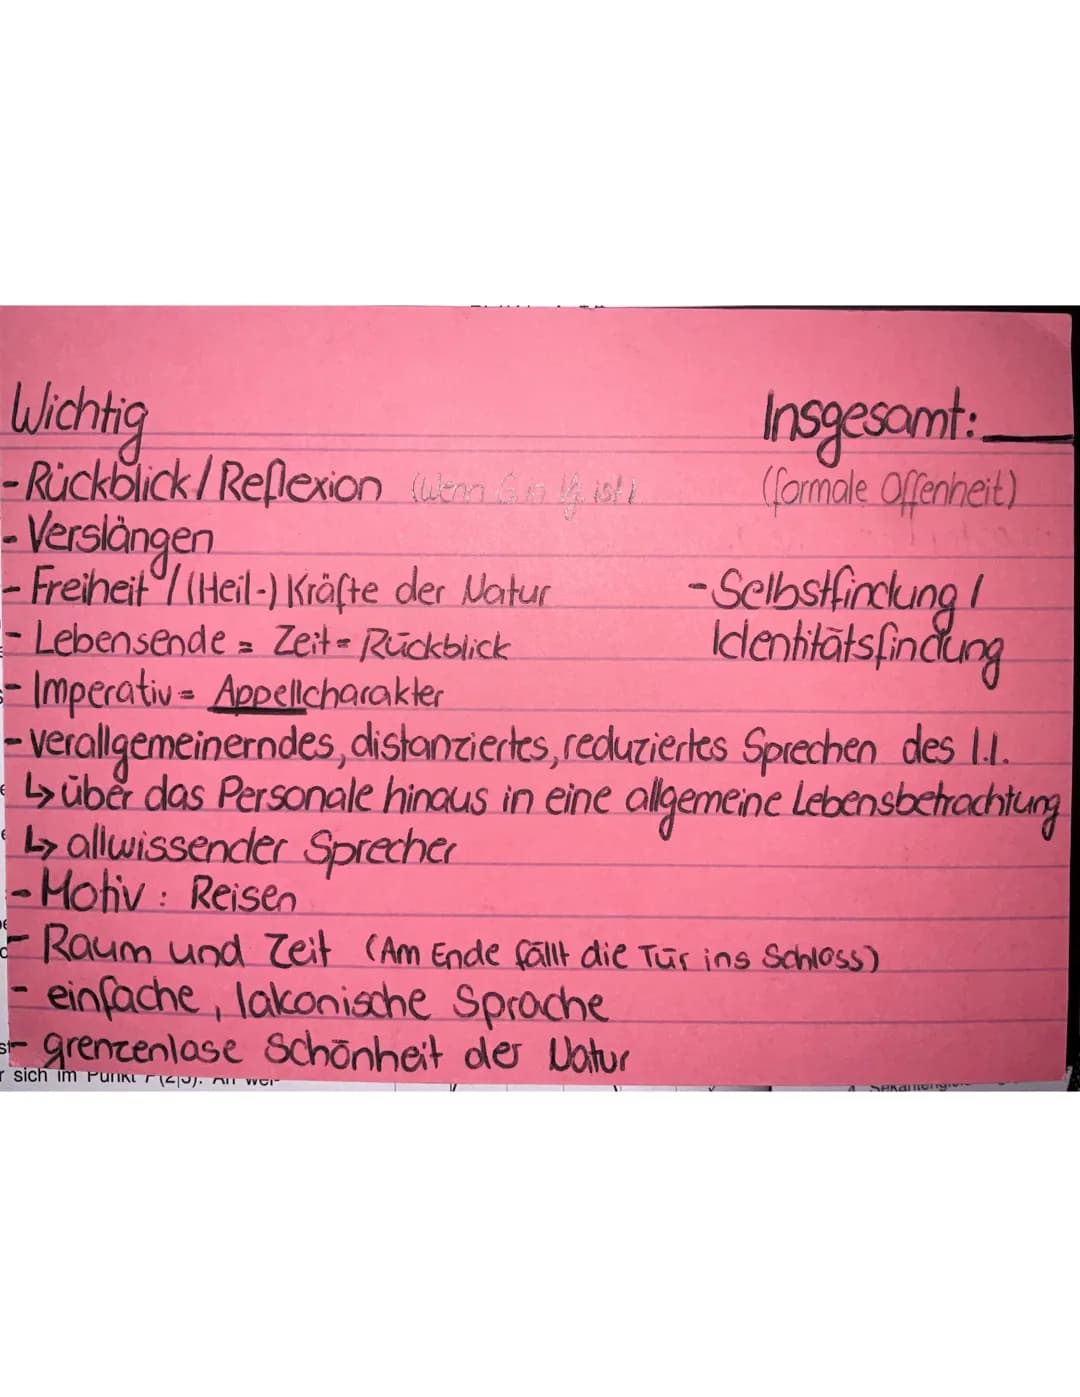 Wichtig
Insgesamt:
- Rückblick / Reflexion (Wenn G in Vg. ist)
(formale Offenheit)
- Verslängen
- Freiheit / (Heil-) Kräfte der Natur
- Selbstfindung /
Identitätsfindung
- Lebensende = Zeit = Rückblick
- Imperativ = Appellcharakter
- verallgemeinerndes, distanziertes, reduziertes Sprechen des l.I.
↳ über das Personale hinaus in eine allgemeine Lebensbetrachtung
↳ allwissender Sprecher
- Motiv : Reisen
- Raum und Zeit (Am Ende fällt die Tür ins Schloss)
- einfache, lakonische Sprache
- grenzenlose Schönheit der Natur
sich im Punkt P(2|3). An wel-